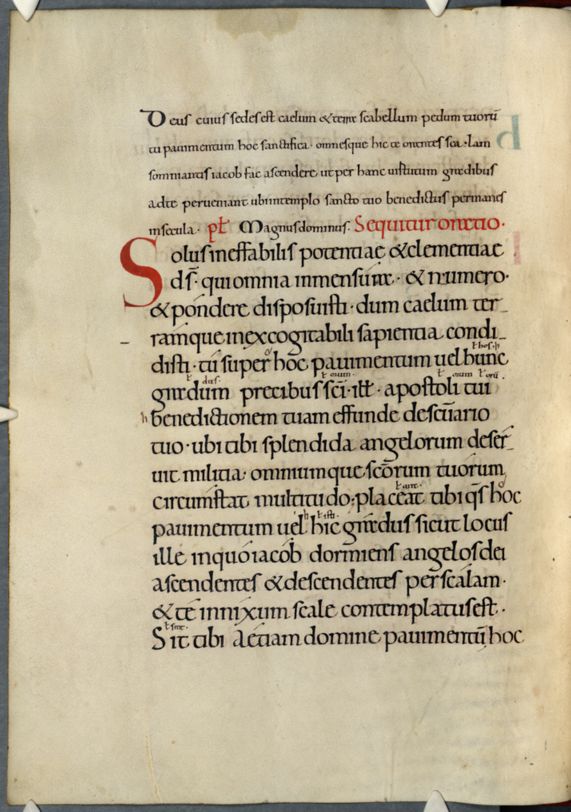 Deus cuius sedes est caelum & terre scabellum pedum tuorū
tu pavimentum hoc sanctifica· omnesque hic te orentes Iam
somniantis iacob fac ascendere· ut per hanc gredibus
adte perveniant ubi intemplo sancto tuo benedictus permanes
insecula· Magnus dominus· Sequitur oratio·
Solus ineffabilis potentiae & clementiae
ds̄· qui omnia in mensura· & numero·
& pondere disposuisti· dum caelum ter-
ramque inexcogitabili sapientia condi-
disti· tū super hoc pavimentum vel hunc
gradum precibus sc̄i· ill̄· apostoli tui
benedictionem tuam effunde desc̄uario
tuo· ubi tibi splendida angelorum deser-
vit militia· omniumque sc̄orum tuorum
circumstat multitudo; placeat tibi qs̄ hoc
pavimentum vel hic gradus sicut locus
ille inquo iacob dormiens angelos dei
ascendentes & descendentes per scalam·
& te innixum scale contemplatus est·
Sit tibi aetiam domine pavimentū hoc